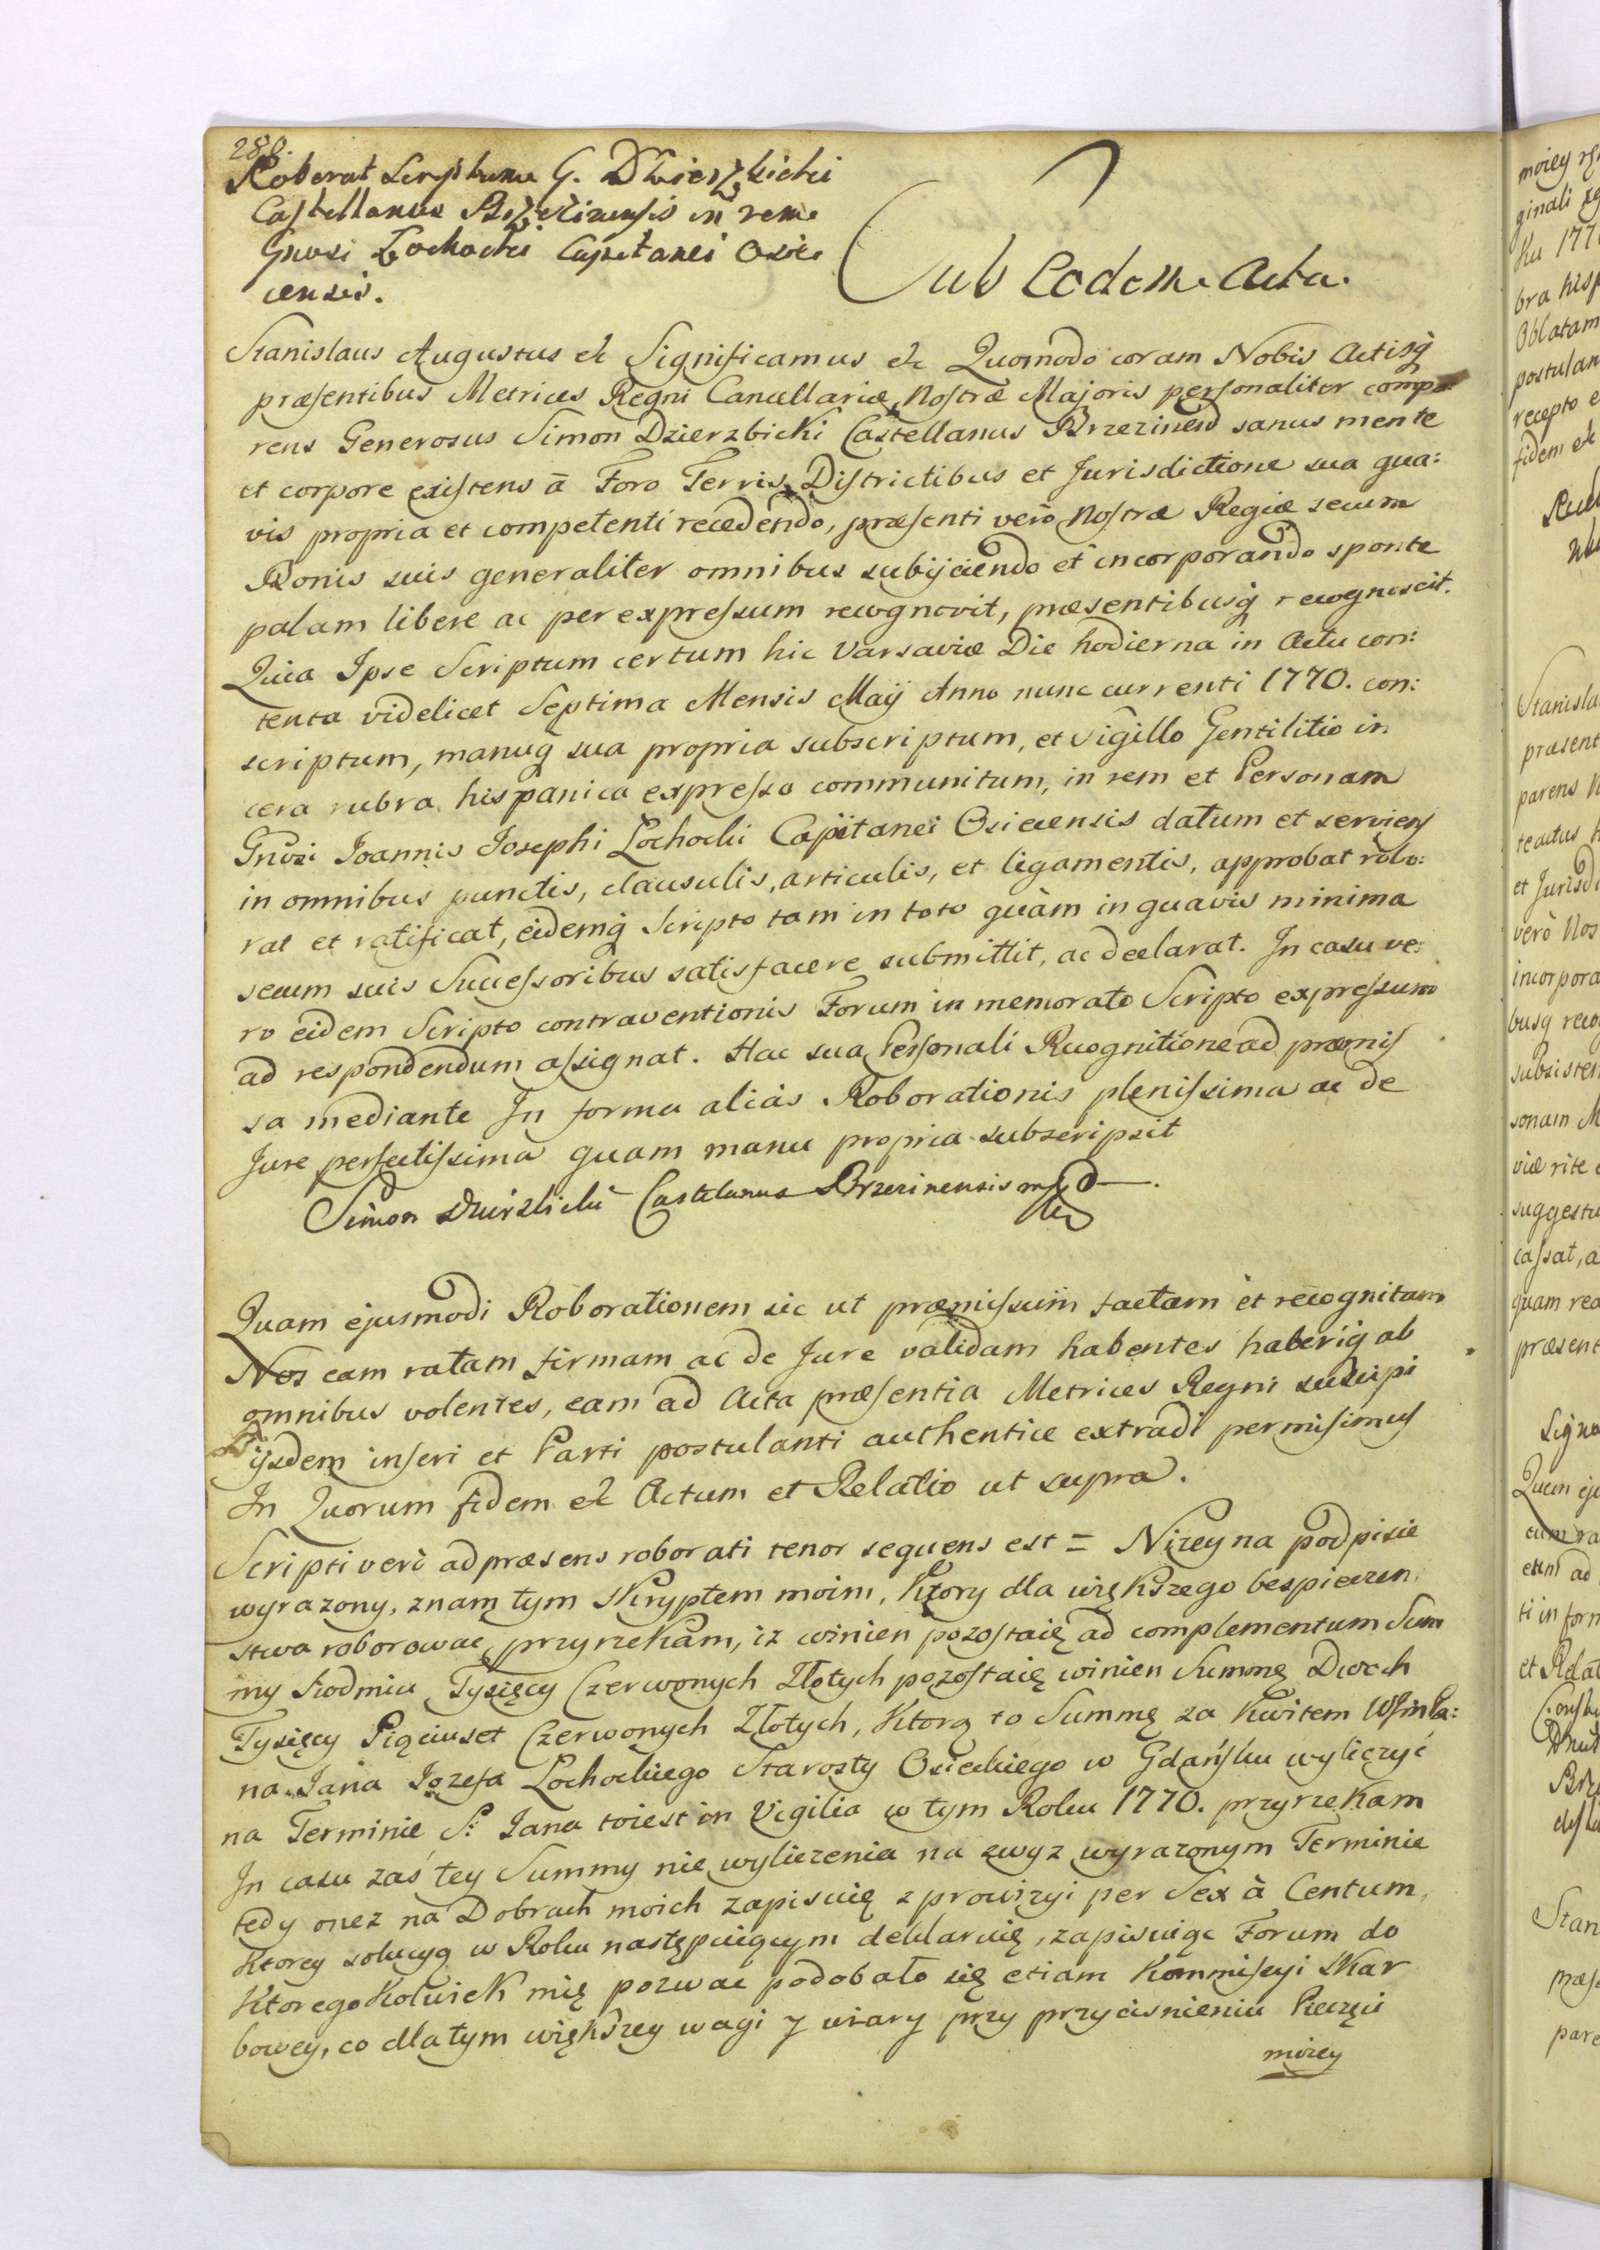 280.
Roborat Scriptum G. Dzierzbicki
Castellanus Brzezinensis in rem
Gnosi Lochocki Capitanei Osie
censis.
Sub Eadem Acta.
Stanislaus Augustus &c Significamus &c Quomodo coram Nobis Actisq
præsentibus Metrices Regni Cancellariæ Nostræ Majoris personaliter compa
rens Generosus Simon Dzierzbicki Castellanus Brzezinens sanus mente
et corpore existens à Foro Terris Districtibus et Jurisdictione sua qua:
vis propria et competenti recedendo, præsenti verò Nostræ Regiæ secum
Bonis suis generaliter omnibus subijciendo et incorporando sponte
palam libere ac per expressum recognovit, præsentibusq recognoscit.
Quia Ipse Scriptum certum hic Varsaviæ Die hodierna in Actu con:
tenta videlicet Septima Mensis Maij Anno nunc currenti 1770. con:
scriptum, manuq sua propria subscriptum, et Sigillo Gentilitio in
cera rubra hispanica expresso communitum, in rem et Personam
Gnosi Joannis Josephi Lochocki Capitanei Osiecensis datum et serviens
in omnibus punctis, clausulis, articulis, et ligamentis, approbat robo:
rat et ratificat, eidemq Scripto tam in toto quàm in quavis minima
secum suis Successoribus satisfacere submittit, ac declarat. In casu ve:
ro eidem Scripto contraventionis Forum in memorato Scripto expressum
ad respondendum assignat. Hac sua Personali Recognitione ad præmis
sa mediante In forma aliàs Roborationis plenissima ac de
Jure perfectissima quam manu propria subscripsit
Simon Dzierzbicki Castelanus Brzezinensis mp
Quam ejusmodi Roborationem sic ut præmissum factam et recognitam
Nos eam ratam firmam ac de Jure validam habentes haberiq ab
omnibus volentes, eam ad Acta præsentia Metrices Regni suscipi
ijsdem inseri et Parti postulanti authentice extradi permisimus
In Quorum fidem &c Actum et Relatio ut supra.
Scripti verò ad præsens roborati tenor sequens est = Nizey na podpisie
wyrazony, znam tym Skryptem moim, Ktory dla większego bespieczen
stwa roborowac przyrzekam, iz winien pozostaię ad complementum Sum
my siodmiu Tysięcy Czerwonych Złotych pozostaię winien Summę Dwoch
Tysięcy Pięciuset Czerwonych Złotych, Ktorą to Summę za Kwitem WJmPa:
na Jana Jozefa Lochockiego Starosty Osieckiego w Gdańsku wyliczyć
na Terminie S: Jana toiest in Vigilia w tym Roku 1770. przyrzekam
In casu zaś tey Summy nie wyliczenia na zwyz wyrazonym Terminie
tedy onez na Dobrach moich zapisuię z prowizyi per Sex à Centum,
Ktorey solucyą w Roku następuiącym deklaruię, zapisuiąc Forum do
Ktorego Kolwiek mię pozwac podobało się etiam Kommissyi Skar
bowey, co dla tym większey wagi y wiary przy przycisnieniu Pieczęci
moiey